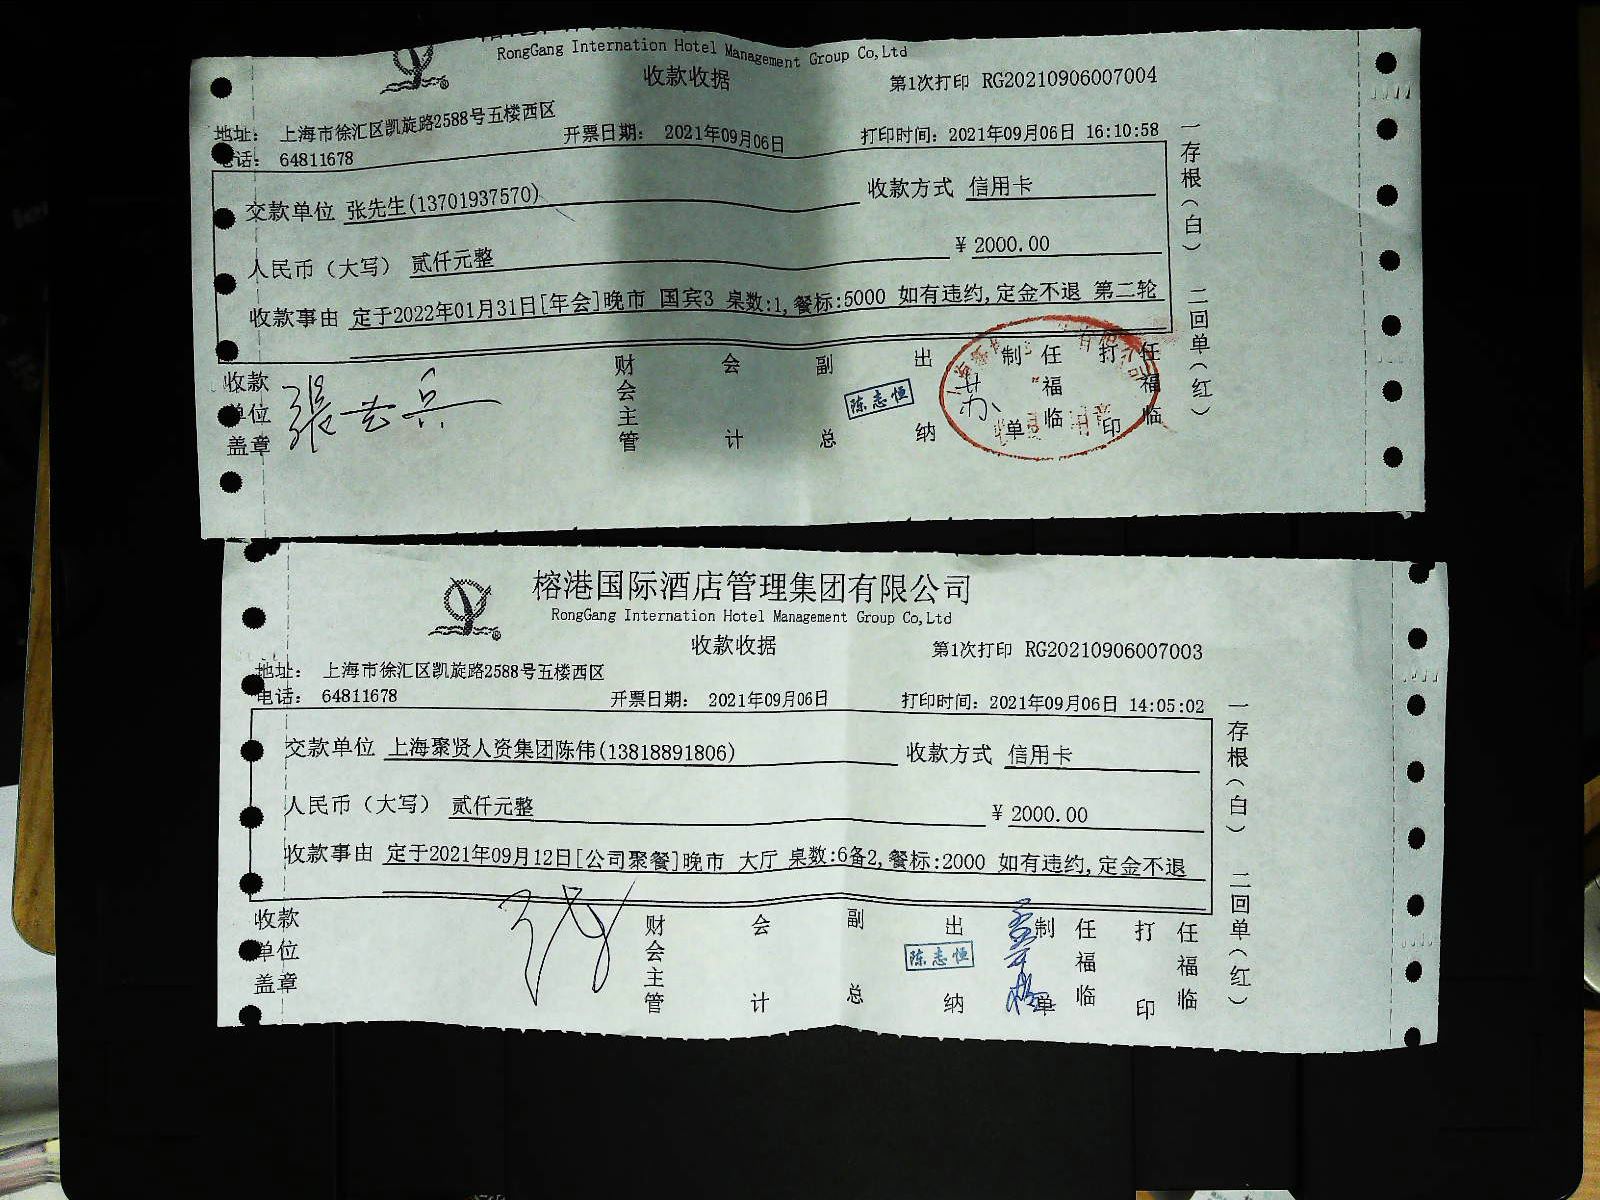 RongGang Internation Hotel Management Group Co,Ltd
收款收据
第1次打印 RG20210906007004
地址： 上海市徐汇区凯旋路2588号五楼西区
开票日期： 2021年09月06日
打印时间：2021年09月06日 16:10:58
电话： 64811678
交款单位 张先生(13701937570)
收款方式 信用卡
人民币（大写） 贰仟元整
¥ 2000.00
收款事由 定于2022年01月31日[年会]晚市 国宾3 桌数:1,餐标:5000 如有违约,定金不退 第二轮
收款单位盖章
财会主管
会计
副总
出纳
陈志恒
制单
任福临
打印
任福临
一存根（白） 二回单（红）
榕港国际酒店管理集团有限公司
RongGang Internation Hotel Management Group Co,Ltd
收款收据
第1次打印 RG20210906007003
地址： 上海市徐汇区凯旋路2588号五楼西区
电话： 64811678
开票日期： 2021年09月06日
打印时间：2021年09月06日 14:05:02
交款单位 上海聚贤人资集团陈伟(13818891806)
收款方式 信用卡
人民币（大写） 贰仟元整
¥ 2000.00
收款事由 定于2021年09月12日[公司聚餐]晚市 大厅 桌数:6备2,餐标:2000 如有违约,定金不退
收款单位盖章
财会主管
会计
副总
出纳
陈志恒
制单
任福临
打印
任福临
一存根（白） 二回单（红）